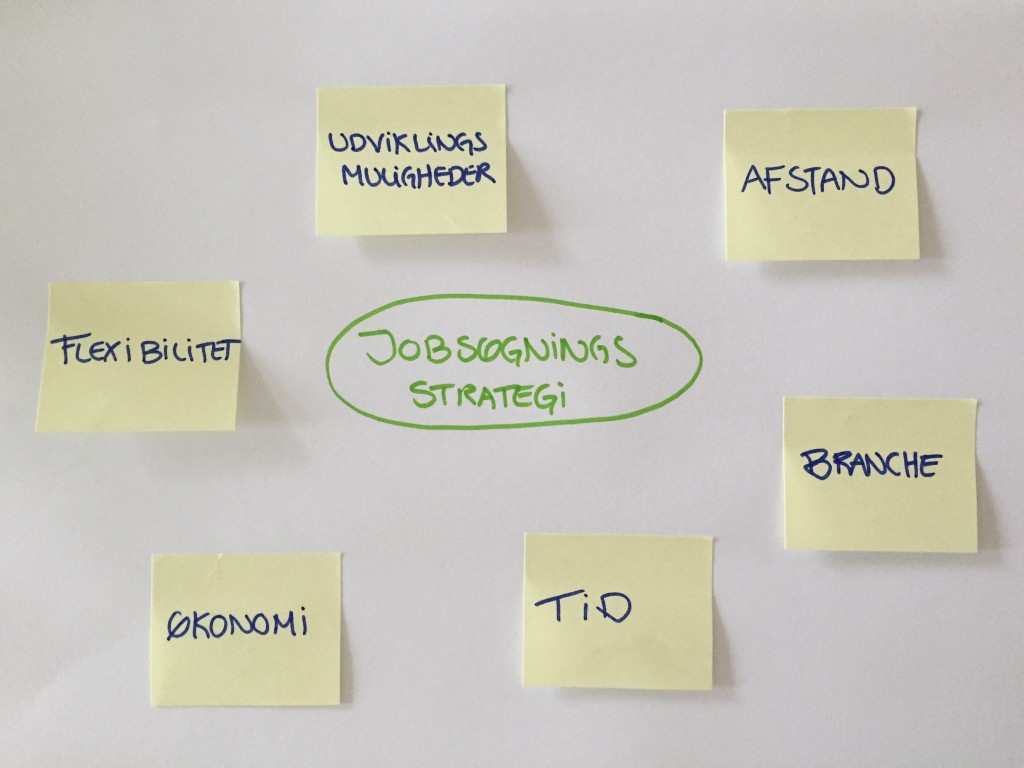 UDVIKLINGS
MULIGHEDER
AFSTAND
FLEXIBILITET
JOBSØGNINGS
STRATEGI
BRANCHE
ØKONOMI
TID